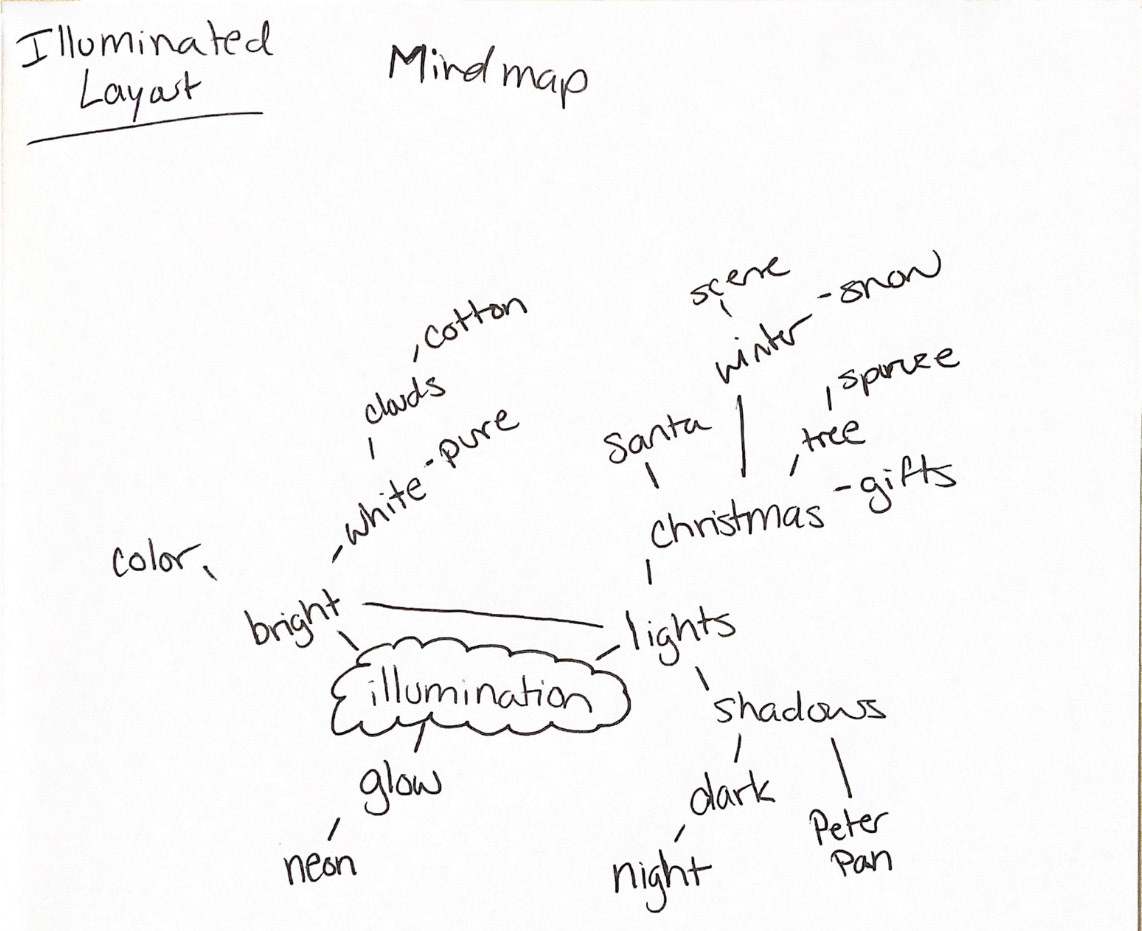 Illuminated
Layout
Mind map
scene
-snow
cotton
winter
spruce
clouds
santa
tree
white-pure
-gifts
christmas
color
bright
lights
illumination
shadows
glow
dark
Peter
Pan
neon
night